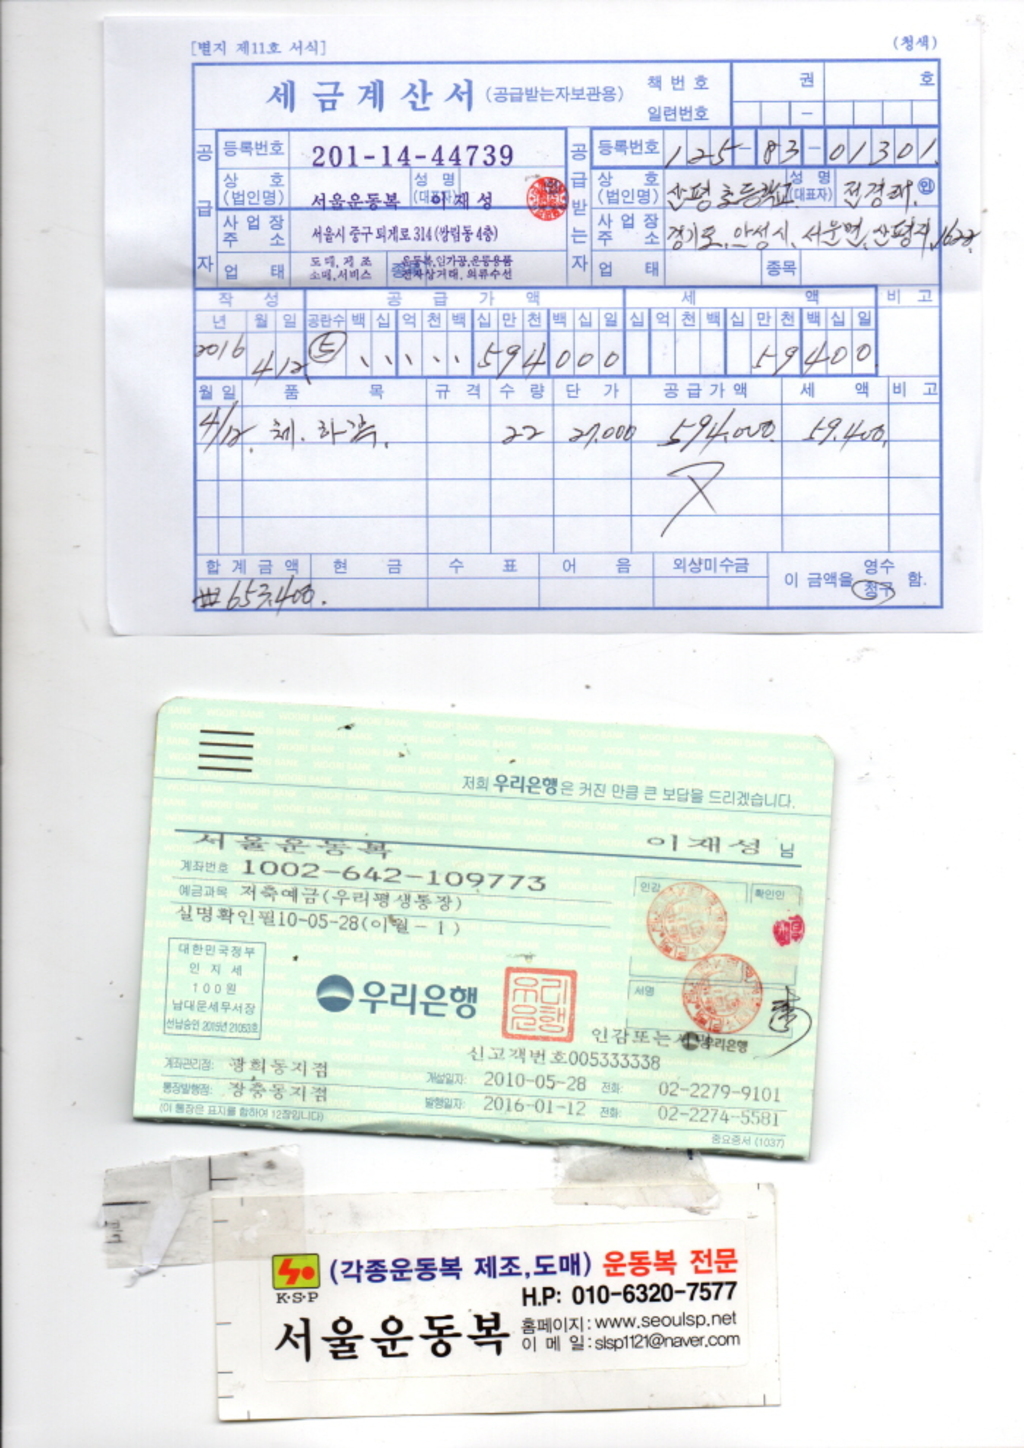 [별지 제11호 서식] (청색)
세금계산서 (공급받는자보관용) 책번호 권 호
일련번호 -
공급자 등록번호 201-14-44739 공급받는자 등록번호 125-83-01301
상호(법인명) 서울운동복 성명(대표자) 이재성 상호(법인명) 산평초등학교 성명(대표자) 전경래 인
사업장주소 서울시 중구 퇴계로 314 (쌍림동 4층) 사업장주소 경기도, 안성시, 서운면, 산평리, 162
업태 도매, 제조 소매, 서비스 종목 운동복, 임가공, 운동용품 전자상거래, 의류수선 업태 종목
작성 공급가액 세액 비고
년 월 일 공란수 백 십 억 천 백 십 만 천 백 십 일 십 억 천 백 십 만 천 백 십 일
2016 4/12 5 594000 59400
월일 품목 규격 수량 단가 공급가액 세액 비고
4/12. 체. 하복. 22 27,000 594,000 59,400.
합계금액 현금 수표 어음 외상미수금 이 금액을 영수 청구 함.
₩653,400.
저희 우리은행은 커진 만큼 큰 보답을 드리겠습니다.
서울운동복 이재성 님
계좌번호 1002-642-109773
인감 확인인
예금과목 저축예금(우리평생통장)
실명확인필10-05-28(이월-1)
대한민국정부
인지세
100원
남대문세무서장
선납승인 2015년 21053호
우리은행
우리은행
서명
인감또는서명 우리은행
신고객번호005333338
계좌관리점: 광희동지점 개설일자: 2010-05-28 전화: 02-2279-9101
통장발행점: 장충동지점 발행일자: 2016-01-12 전화: 02-2274-5581
(이 통장은 표지를 합하여 12장입니다) 중요증서 (1037)
K·S·P
(각종운동복 제조,도매) 운동복 전문
H.P: 010-6320-7577
서울운동복
홈페이지: www.seoulsp.net
이 메 일: slsp1121@naver.com